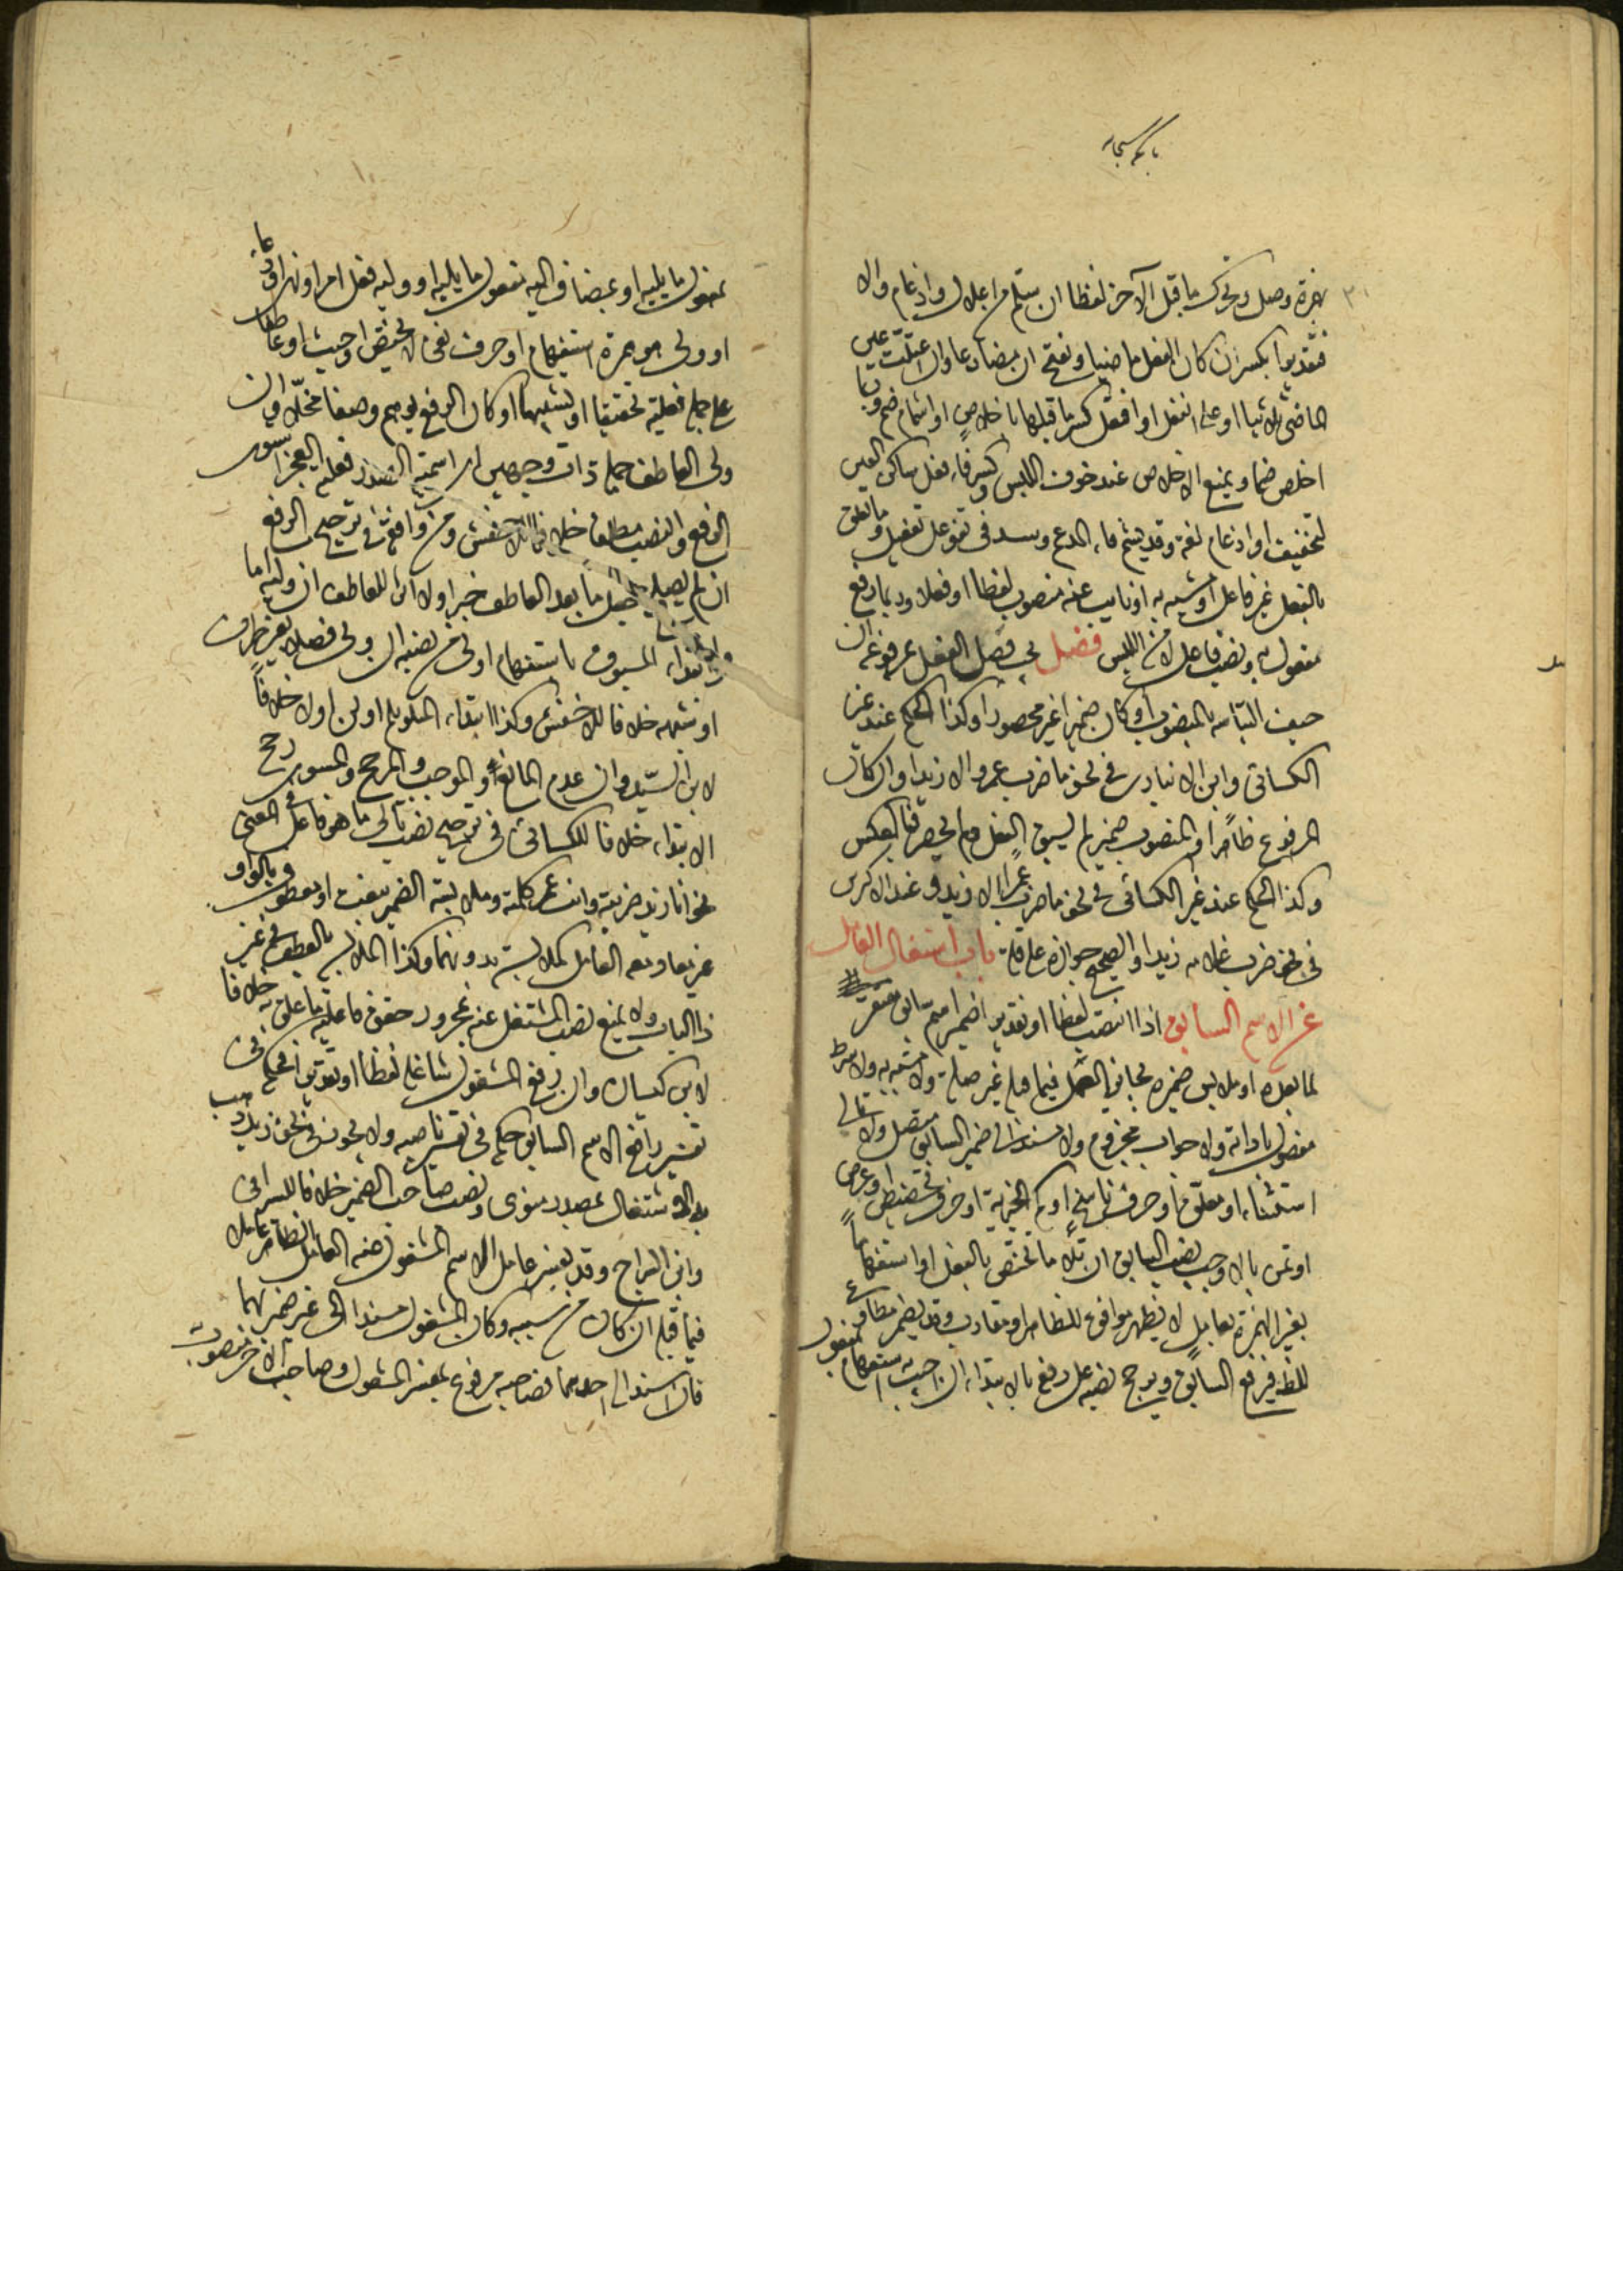 همزة وصل ويحرك ما قبل الآخر لفظا ان سلم من اعلال وادغام والا
فتقديرا بكسر ان كان الفعل ماضيا وبفتح ان مضارعا وان اعتلت عين
الماضي ثلاثيا او على انفعل او افتعل كسر ما قبلها باخلاص او اشمام ضم وربما
اخلص ضما ويمنع الاخلاص عند خوف اللبس وكسر فاء فعل ساكن العين
لتخفيف او ادغام لغة وقد يشم فاء المدغم وشذ في تفوعل تفعيل وما تعلق
بالفعل غير فاعل او شبيه به او نايب عنه منصوب لفظا او محلا وربما رفع
مفعول به ونصب فاعل لامن اللبس فصل يجب فصل الفعل بمرفوعه ان
خيف التباسه بالمنصوب او كان ضميرا غير محصور وكذا الحكم عند غير
الكسائي وابن الانباري في نحو ما ضرب عمرو الا زيدا وان كان
المرفوع ظاهرا والمنصوب ضميرا لم يسبق الفعل ولم يحصر فبالعكس
وكذا الحكم عند غير الكسائي في نحو ما ضرب عمرا الا زيد وعند الاكثرين
في نحو ضرب غلامه زيدا والصحيح جوازه على قلة باب اشتغال العامل
عن الاسم السابق اذا انتصب لفظا او تقديرا ضمير اسم سابق مفتقر
لما بعده او ملابس ضميره بجائز العمل فيما قبله غير صلة ولا مشبه بها ولا شرط
مفصول باداته ولا جواب مجزوم ولا مسند الى ضمير السابق متصل ولا تالي
استثناء او معلق او حرف ناسخ او كم الخبرية او حرف تحضيض او عرض
او تمن بالا وجب نصب السابق ان تلا ما يختص بالفعل او استفهاما
بغير الهمزة بعامل لا يظهر موافق للظاهر او مقارب وقد يضمر مطاوع
للظاهر فيرفع السابق ويرجح نصبه على رفعه بالابتداء ان اجيب به استفهام مفعول
مفعول ما يليه او بمضاف اليه مفعول ما يليه او وليه فعل امر او نهي او دعاء
او ولي هو همزة استفهام او حرف نفي لا يختص او حيث او عاطفا
على جملة فعلية تحقيقا او تشبيها او كان الرفع يوهم وصفا مخلا وان
ولي العاطف جملة ذات وجهين اي اسمية الصدر فعلية العجز استوى
الرفع والنصب مطلقا خلافا للاخفش ومن وافقه في ترجيح الرفع
ان لم يصلح جعل ما بعد العاطف خبرا ولا اثر للعاطف ان وليه اما
وابتداء المسبوق باستفهام اولى من نصبه ان ولي فصلا بغير ظرف
او شبهه خلافا للاخفش وكذا ابتداء المتلو بلم او لن او لا خلافا
لابن السيد وان عدم المانع والموجب والمرجح والمسوي رجح
الابتداء خلافا للكسائي في ترجيح نصب تالي ما هو فاعل في المعنى
نحو انا زيد ضربته وانت عمرو كلمته وملابسة الضمير بنعت او معطوف بالواو
غير معاد معه العامل كملابسته بدونهما وكذا الملابسة بالعطف في غير
ذا الباب ولا يمنع نصب المشتغل عنه بمجرور حقق فاعلية ما علق به خلافا
لابن كيسان وان رفع المشغول شاغله لفظا او تقديرا فحكمه في
تفسير رافع الاسم السابق حكمه في تفسير ناصبه ولا يجوز في نحو زيد ذهب
به الاشتغال بمصدر منوي ونصب صاحب الضمير خلافا للسيرافي
وابن السراج وقد يفسر عامل الاسم المشغول عنه العامل الظاهر عاملا
فيما قبله ان كان من سببه وكان المشغول مسندا الى غير ضميرهما
فان اسند الى احدهما فصاحبه مرفوع بمفسر المشغول وصاحب الآخر منصوب